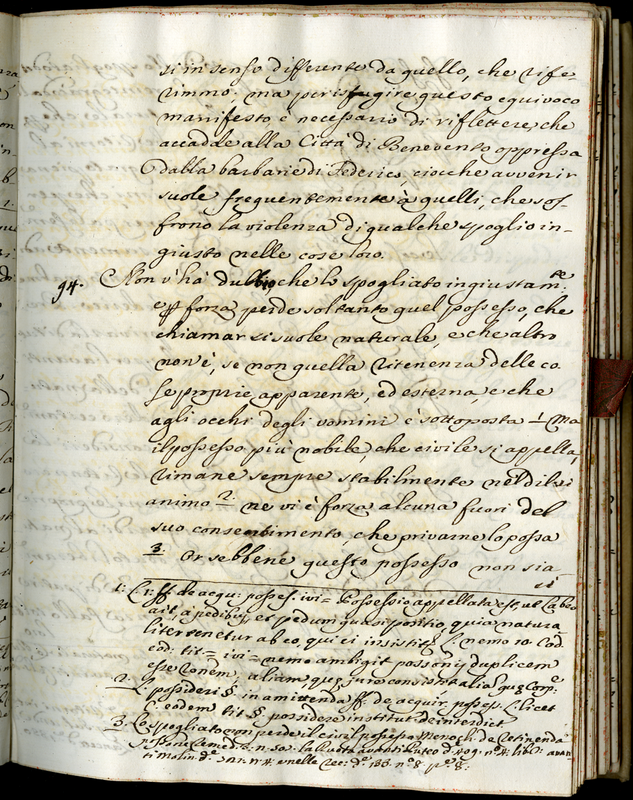 si in senso differente da quello, che rife
rimmo: ma per isfugire questo equivoco
manifesto è necessario di riflettere, che
accadde alla Città di Benevento oppressa
dalla barbarie di Federico, ciocche avvenir
suole frequentemente à quelli, che sof-
frono la violenza di qualche spoglio in-
giusto nelle cose loro.
94. Non v'hà dubbio, che lo spogliato ingiustam.te
e forza perde soltanto quel possesso, che
chiamar si suole naturale, e che altro
non è, se non quella ritenenza delle co
se proprie, apparente, ed esterna e che
agli occhi degli uomini è sottoposta 1. Ma
il possesso più nobile, che civile si appella,
rimane sempre stabilmente nel di lui
animo 2. ne vi è forza alcuna fuori del
suo consentimento che privarne lo possa
3. Or sebbene questo possesso non sia
si
1. L. 1. ff. de acqu: posses. ivi = Possessio appellata est, ut Labeo
ait, a pedibus, et pedum quasi positio, quia natura
liter tenetur ab eo, qui ei insistit L. nemo 10. Cod.
eod: tit = ivi = nemo ambigit possonis duplicem
esse ronem, aliam quae jure consistit alia quae Corp.e
2. L. possideri §. in amittenda ff. de acquir. posses. L. licet
C. eodem tit §. possidere institut de interdict
3. Lo spogliato non perde il civil possesso Menoch. de retinenda